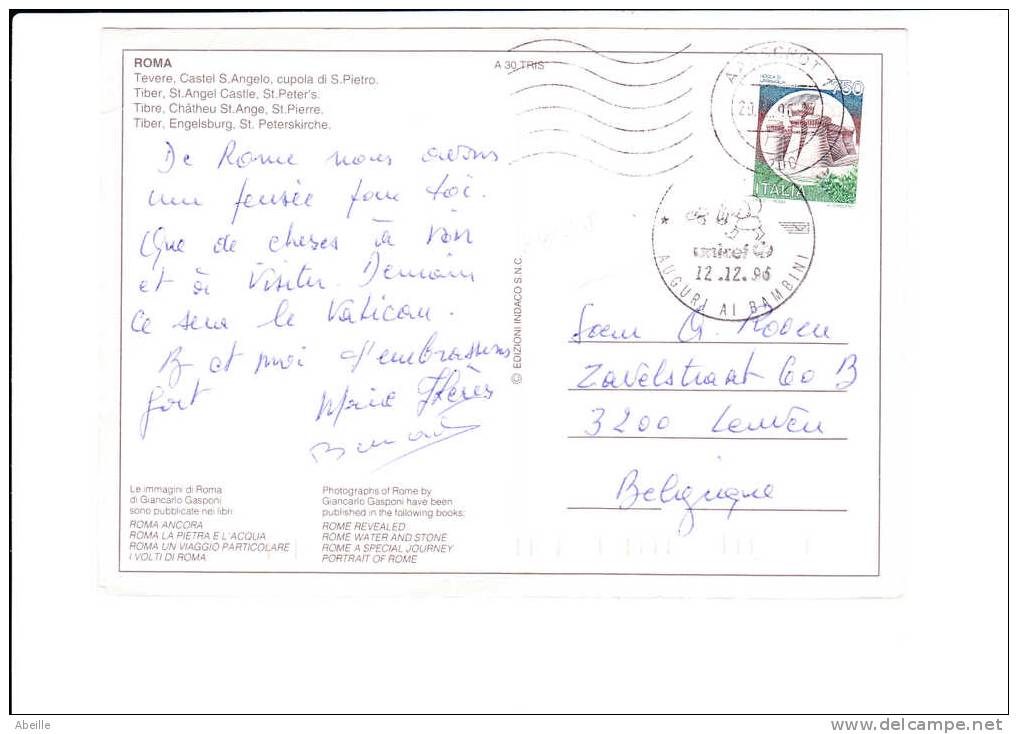 ROMA
Tevere, Castel S.Angelo, cupola di S.Pietro.
Tiber, St.Angel Castle, St.Peter's.
Tibre, Châtheu St.Ange, St.Pierre.
Tiber, Engelsburg, St. Peterskirche.
A 30 TRIS
De Rome nous avons
une pensée pour toi.
Que de choses à voir
et à visiter. Demain
ce sera le Vatican.
B et moi t'embrassons
fort Marie Thérès
AARSCHOT
750
ITALIA
unicef
12.12.96
AUGURI AI BAMBINI
© EDIZIONI INDACO S.N.C.
Soeur G.
Zavelstraat 60 B
3200 Leuven
Belgique
Le immagini di Roma
di Giancarlo Gasponi
sono pubblicate nei libri:
ROMA ANCORA
ROMA LA PIETRA E L'ACQUA
ROMA UN VIAGGIO PARTICOLARE
I VOLTI DI ROMA
Photographs of Rome by
Giancarlo Gasponi have been
published in the following books:
ROME REVEALED
ROME WATER AND STONE
ROME A SPECIAL JOURNEY
PORTRAIT OF ROME
Abeille
www.delcampe.net